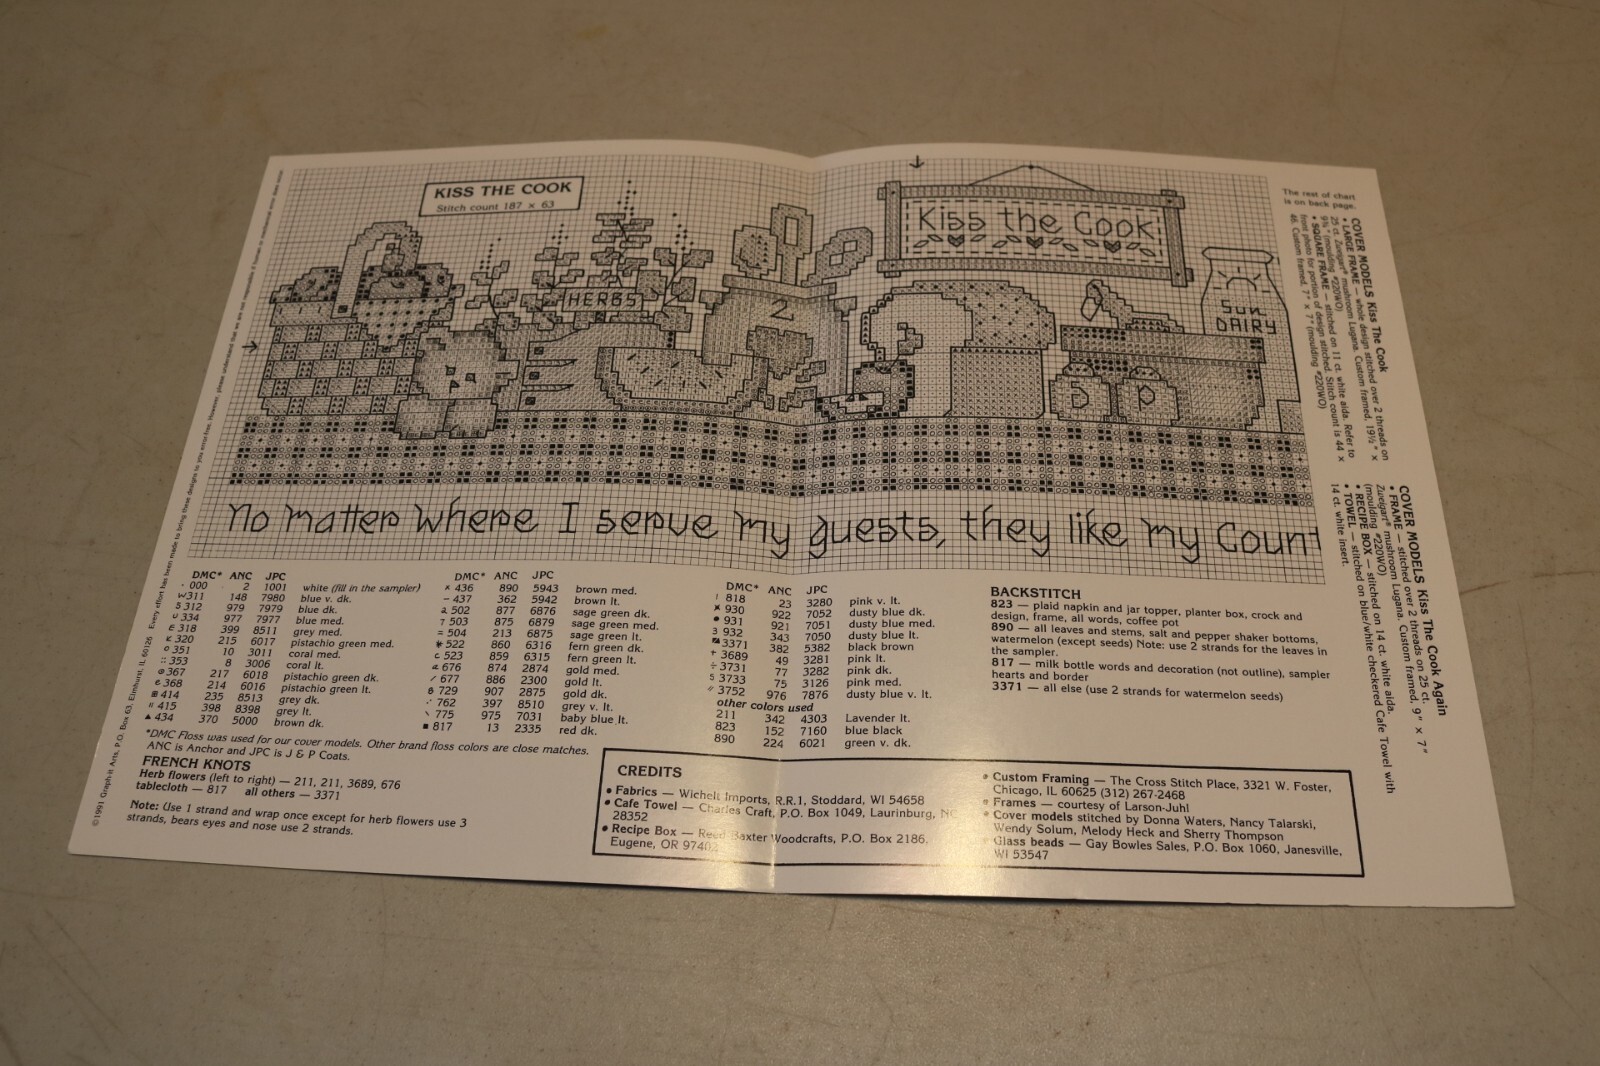 KISS THE COOK
Stitch count 187 × 63
Kiss the Cook
HERBS
2
SUN
DAIRY
S P
No matter where I serve my guests, they like my Count
The rest of chart
is on back page.
COVER MODELS Kiss The Cook
• LARGE FRAME — whole design stitched over 2 threads on
25 ct. Zweigart® mushroom Lugana. Custom framed, 19½" ×
9¾" (moulding #220WO)
• SQUARE FRAME — stitched on 11 ct. white aida. Refer to
front photo for portion of design stitched. Stitch count is 44 ×
46. Custom framed, 7" × 7" (moulding #220WO)
COVER MODELS Kiss The Cook Again
• FRAME — stitched over 2 threads on 25 ct.
Zweigart® mushroom Lugana. Custom framed, 9" × 7"
(moulding #220WO)
• RECIPE BOX — stitched on 14 ct. white aida.
• TOWEL — stitched on blue/white checkered Cafe Towel with
14 ct. white insert.
DMC* ANC JPC
000 2 1001 white (fill in the sampler)
311 148 7980 blue v. dk.
312 979 7979 blue dk.
334 977 7977 blue med.
318 399 8511 grey med.
320 215 6017 pistachio green med.
351 10 3011 coral med.
353 8 3006 coral lt.
367 217 6018 pistachio green dk.
368 214 6016 pistachio green lt.
414 235 8513 grey dk.
415 398 8398 grey lt.
434 370 5000 brown dk.
DMC* ANC JPC
436 890 5943 brown med.
437 362 5942 brown lt.
502 877 6876 sage green dk.
503 875 6879 sage green med.
504 213 6875 sage green lt.
522 860 6316 fern green dk.
523 859 6315 fern green lt.
676 874 2874 gold med.
677 886 2300 gold lt.
729 907 2875 gold dk.
762 397 8510 grey v. lt.
775 975 7031 baby blue lt.
817 13 2335 red dk.
DMC* ANC JPC
818 23 3280 pink v. lt.
930 922 7052 dusty blue dk.
931 921 7051 dusty blue med.
932 343 7050 dusty blue lt.
3371 382 5382 black brown
3689 49 3281 pink lt.
3731 77 3282 pink dk.
3733 75 3126 pink med.
3752 976 7876 dusty blue v. lt.
other colors used
211 342 4303 Lavender lt.
823 152 7160 blue black
890 224 6021 green v. dk.
BACKSTITCH
823 — plaid napkin and jar topper, planter box, crock and
design, frame, all words, coffee pot
890 — all leaves and stems, salt and pepper shaker bottoms,
watermelon (except seeds) Note: use 2 strands for the leaves in
the sampler.
817 — milk bottle words and decoration (not outline), sampler
hearts and border
3371 — all else (use 2 strands for watermelon seeds)
*DMC Floss was used for our cover models. Other brand floss colors are close matches.
ANC is Anchor and JPC is J & P Coats.
FRENCH KNOTS
Herb flowers (left to right) — 211, 211, 3689, 676
tablecloth — 817 all others — 3371
Note: Use 1 strand and wrap once except for herb flowers use 3
strands, bears eyes and nose use 2 strands.
CREDITS
• Fabrics — Wichelt Imports, R.R.1, Stoddard, WI 54658
• Cafe Towel — Charles Craft, P.O. Box 1049, Laurinburg, NC
28352
• Recipe Box — Reed Baxter Woodcrafts, P.O. Box 2186,
Eugene, OR 97402
• Custom Framing — The Cross Stitch Place, 3321 W. Foster,
Chicago, IL 60625 (312) 267-2468
• Frames — courtesy of Larson-Juhl
• Cover models stitched by Donna Waters, Nancy Talarski,
Wendy Solum, Melody Heck and Sherry Thompson
• Glass beads — Gay Bowles Sales, P.O. Box 1060, Janesville,
WI 53547
©1991 Graph-it Arts, P.O. Box 63, Elmhurst, IL 60126 Every effort has been made to bring these designs to you error-free. However, please understand that we are not responsible